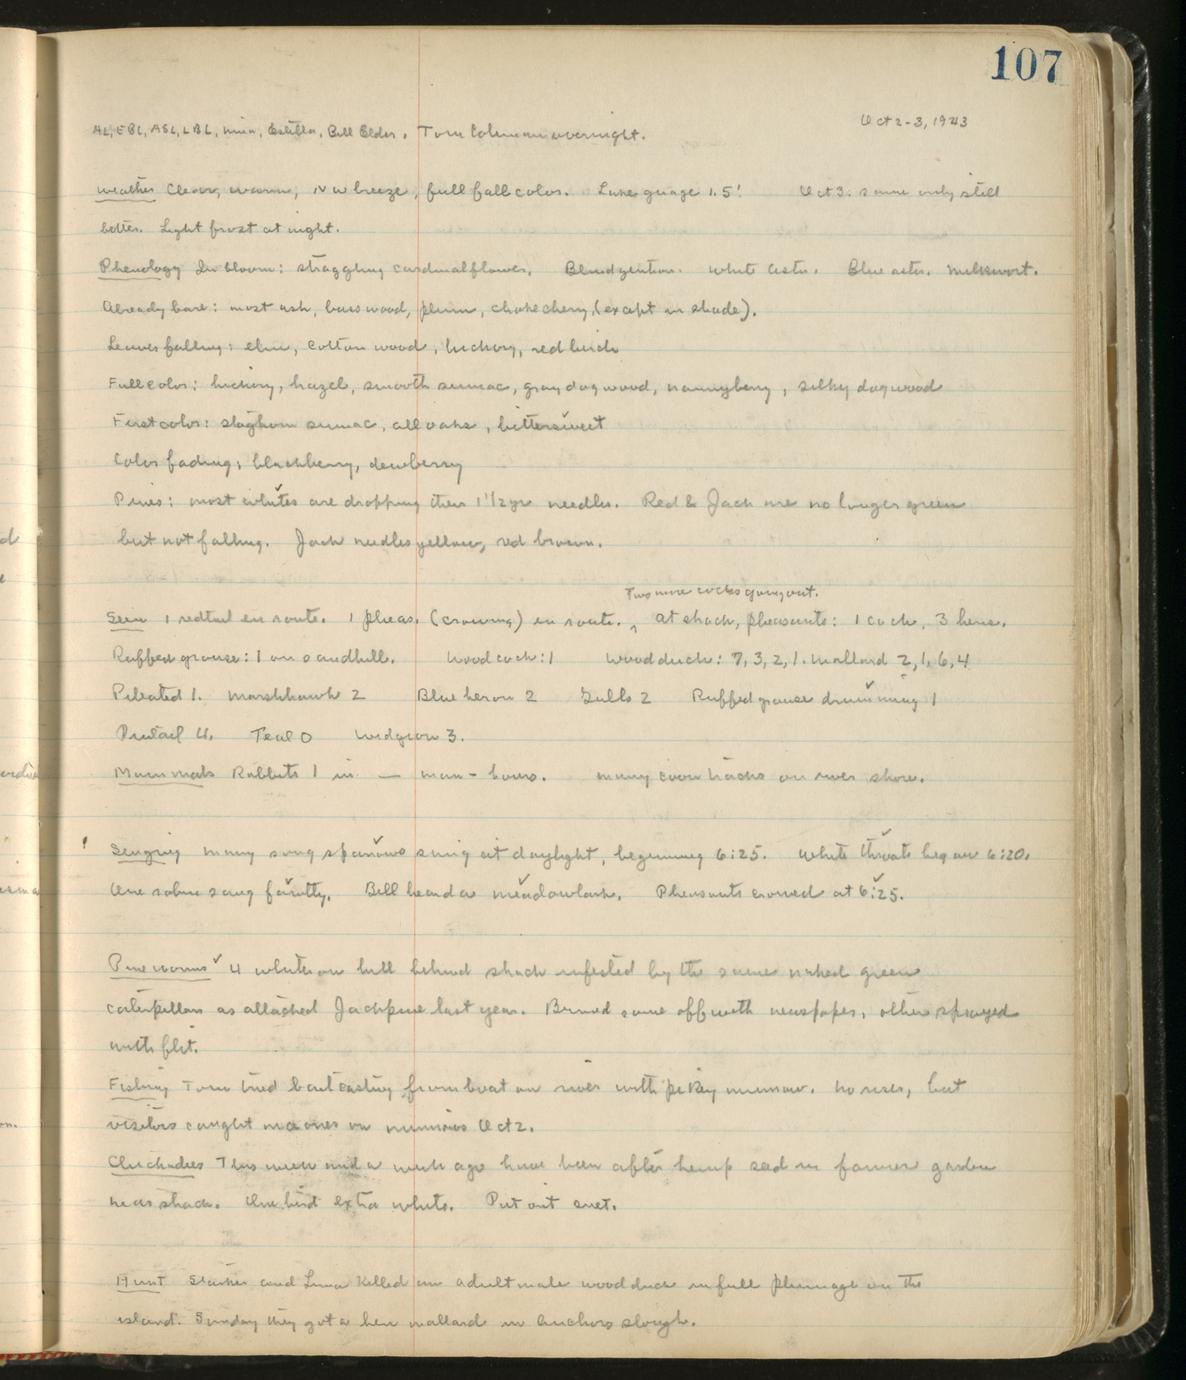 107
AL, EBL, ASL, LBL, Nina, Estella, Bill Elder, Tom Coleman overnight. Oct 2-3, 1943
Weather Clear, warm, NW breeze, full fall color. Lake guage 1.5' Oct 3. same only still
better. Light frost at night.
Phenology In bloom: straggling cardinalflower. Blindgentian. White aster. Blue aster. Milkwort.
Already bare: most ash, basswood, plum, chokecherry, (except in shade).
Leaves falling: elm, cottonwood, hickory, red birch
Full color: hickory, hazel, smooth sumac, gray dogwood, nannyberry, silky dogwood
First color: staghorn sumac, all oaks, bittersweet
Color fading; blackberry, dewberry
Pines: most whites are dropping their 1 1/2 yr needles. Red & Jack are no longer green
but not falling. Jack needles yellow, red brown.
Two more cocks going out.
Seen 1 redtail en route. 1 pheas. (crowing) en route. ^ at shack, pheasants: 1 cock, 3 hens.
Ruffed grouse: 1 on sandhill. Woodcock: 1 Woodduck: 7, 3, 2, 1. Mallard 2, 1, 6, 4
Pileated 1. Marshhawk 2 Blue heron 2 Gulls 2 Ruffed grouse drumming 1
Pintail 4. Teal 0 Widgeon 3.
Mammals Rabbits 1 in — man-hours. Many coon tracks on river shore.
Singing many song sparrows sang at daylight, beginning 6:25. White throats began 6:20.
One robin sang faintly. Bill heard a meadowlark. Pheasants crowed at 6:25.
Pine worms 4 whites on hill behind shack infested by the same naked green
caterpillars as attached Jackpine last year. Burned some off with newspaper, others sprayed
with flit.
Fishing Tom tried baitcasting from boat on river with pikey minnow. No rises, but
visitors caught on minnows Oct 2.
Chickadees This week and a week ago have been after hemp seed in former garden
near shack. One bird extra white. Put out suet.
Hunt Starker and Luna killed an adult male woodduck in full plumage on the
island. Sunday they got a hen mallard in Anchors slough.